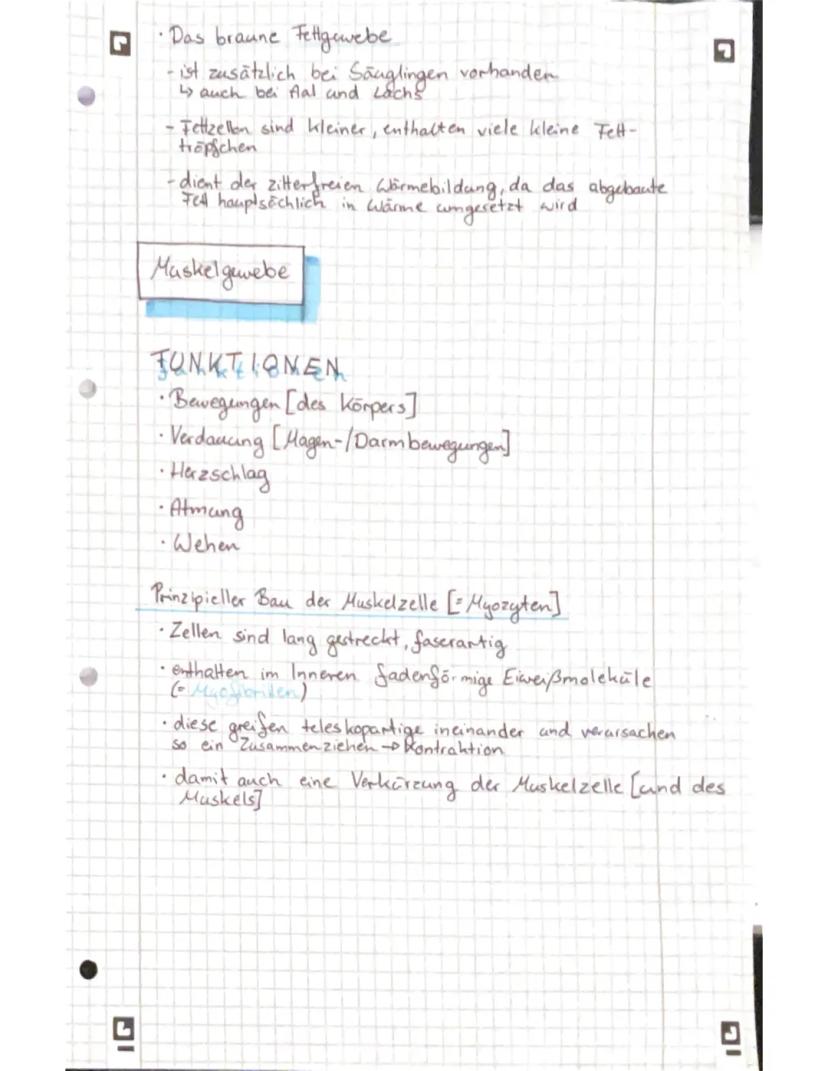 · Das braune Fettgewebe
- ist zusätzlich bei Säuglingen vorhanden
↳ auch bei Aal und Lachs
- Fettzellen sind kleiner, enthalten viele kleine Fett-
tröpfchen
- dient der zitterfreien Wärmebildung, da das abgebaute
Fett hauptsächlich in Wärme umgesetzt wird
Muskelgewebe
FUNKTIONEN
· Bewegungen [des Körpers]
· Verdauung [Magen-/Darmbewegungen]
· Herzschlag
· Atmung
· Wehen
Prinzipieller Bau der Muskelzelle [= Myozyten]
· Zellen sind lang gestreckt, faserartig
· enthalten im Inneren fadenförmige Eiweißmoleküle
(= Myofibrillen)
· diese greifen teleskopartige ineinander und verursachen
so ein Zusammenziehen → Kontraktion
· damit auch eine Verkürzung der Muskelzelle [und des
Muskels]